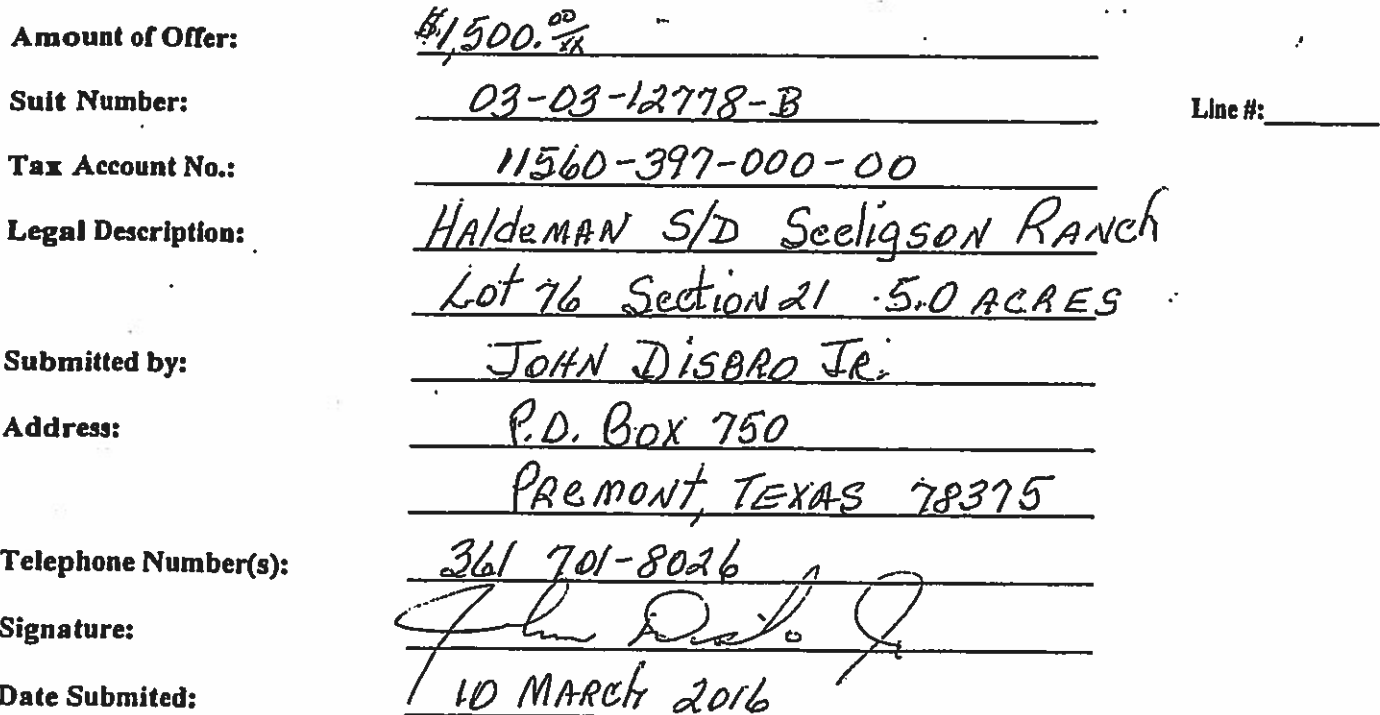 Amount of Offer: $1,500.00/xx
Suit Number: 03-03-12778-B Line #:
Tax Account No.: 11560-397-000-00
Legal Description: HAldeMAN S/D SeeligsoN RANch
Lot 76 Section 21 .5.0 ACRES
Submitted by: JOHN DisBRO JR.
Address: P.O. Box 750
PReMONT, TEXAS 78375
Telephone Number(s): 361 701-8026
Signature: John Disbro Jr
Date Submited: 10 MARCh 2016